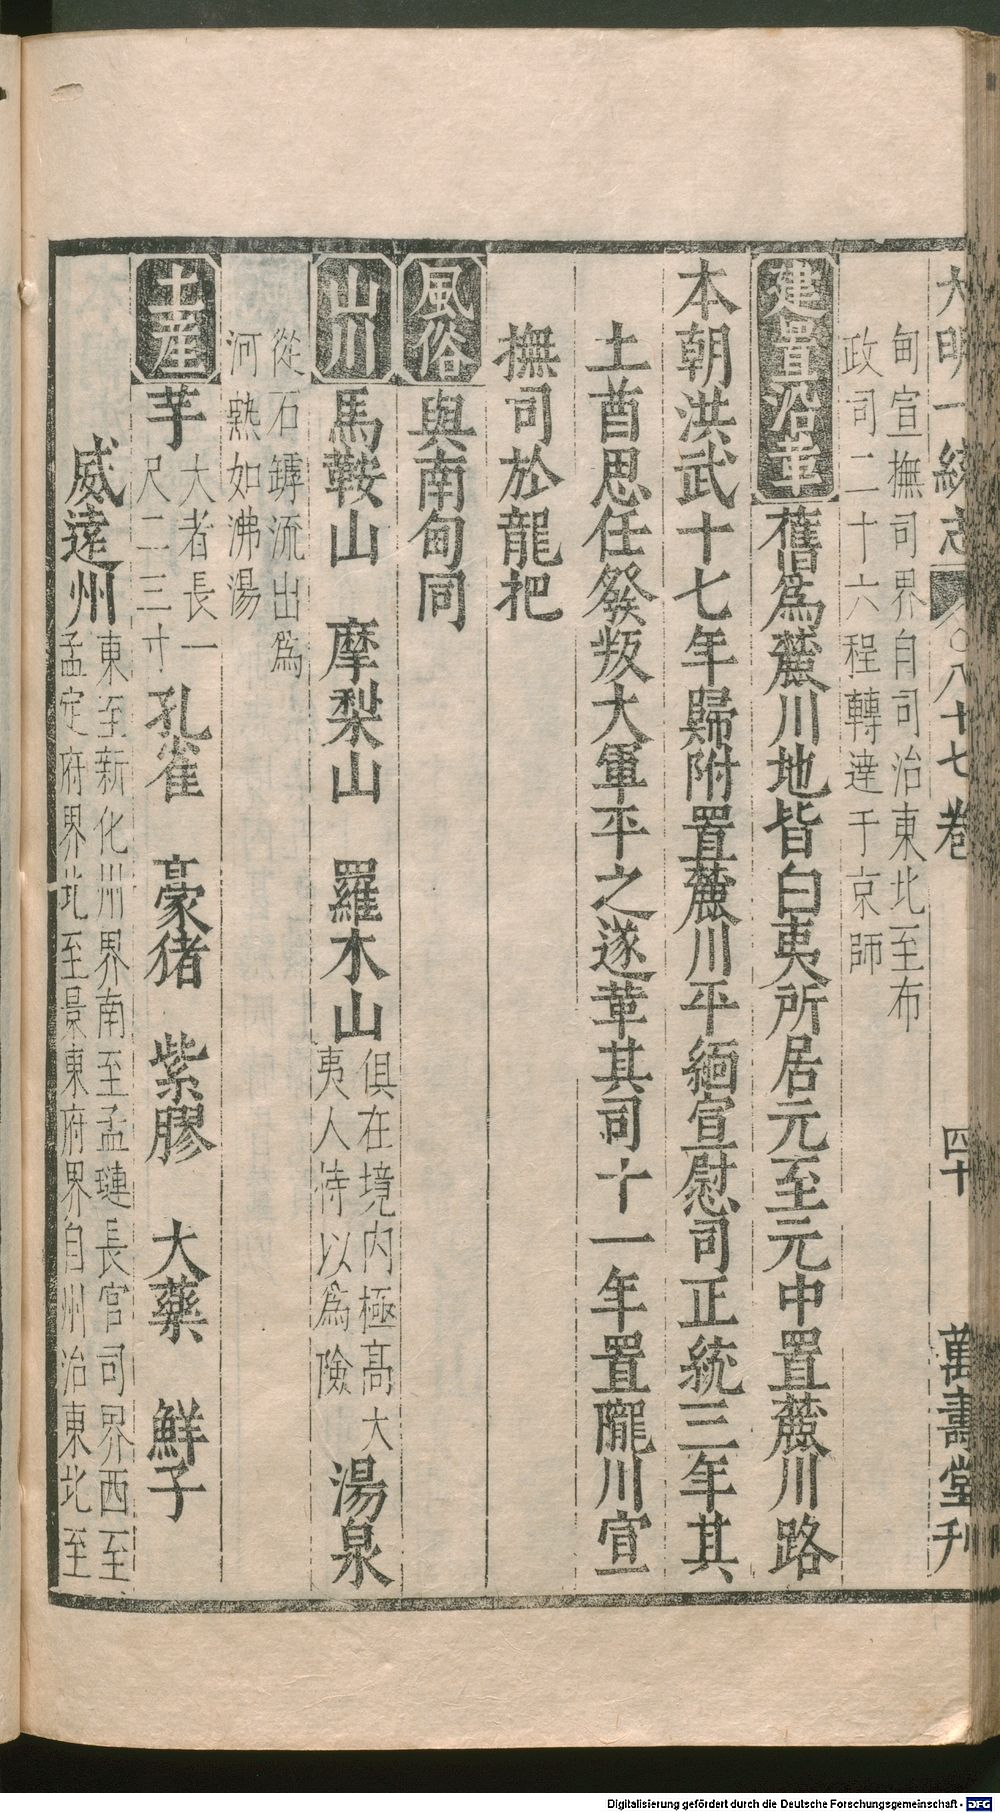 大明一統志 八十七卷 四十 萬壽堂刊
甸宣撫司界自司治東北至布
政司二十六程轉達于京師
建置沿革 舊爲麓川地皆白夷所居元至元中置麓川路
本朝洪武十七年歸附置麓川平緬宣慰司正統三年其
土酋思任發叛大軍平之遂革其司十一年置隴川宣
撫司於龍把
風俗 與南甸同
山川 馬鞍山 摩梨山 羅木山 俱在境內極高大
夷人恃以爲險 湯泉
從石罅流出爲
河熱如沸湯
土產 芋 大者長一
尺二三寸 孔雀 豪猪 紫膠 大藥 鮮子
威遠州 東至新化州界南至孟璉長官司界西至
孟定府界北至景東府界自州治東北至
Digitalisierung gefördert durch die Deutsche Forschungsgemeinschaft - DFG